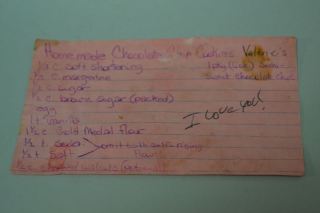 Homemade Chocolate Chip Cookies Valerie's
1/2 c soft shortening 1 pkg (6 oz) semi-
1/2 c margarine sweet chocolate chips
c sugar
c. brown sugar (packed)
egg
1 t vanilla
I love you!
1 1/2 c Gold Medal Flour
1/2 t soda omit both self-rising
1/2 t salt flour
1/2 c chopped walnuts (optional)